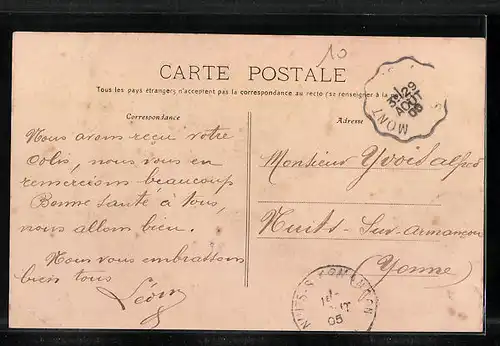 10
CARTE POSTALE
Tous les pays étrangers n'acceptent pas la correspondance au recto (se renseigner à la
Correspondance
Nous avons reçu votre
Colis, nous vous en
remercions beaucoup
Bonne santé à tous,
nous allons bien.
Nous vous embrassons
bien tous
Léon
Adresse
Monsieur Yvois alfred
Nuits-Sur-armançon
(Yonne)
MONT
29
AOUT
05